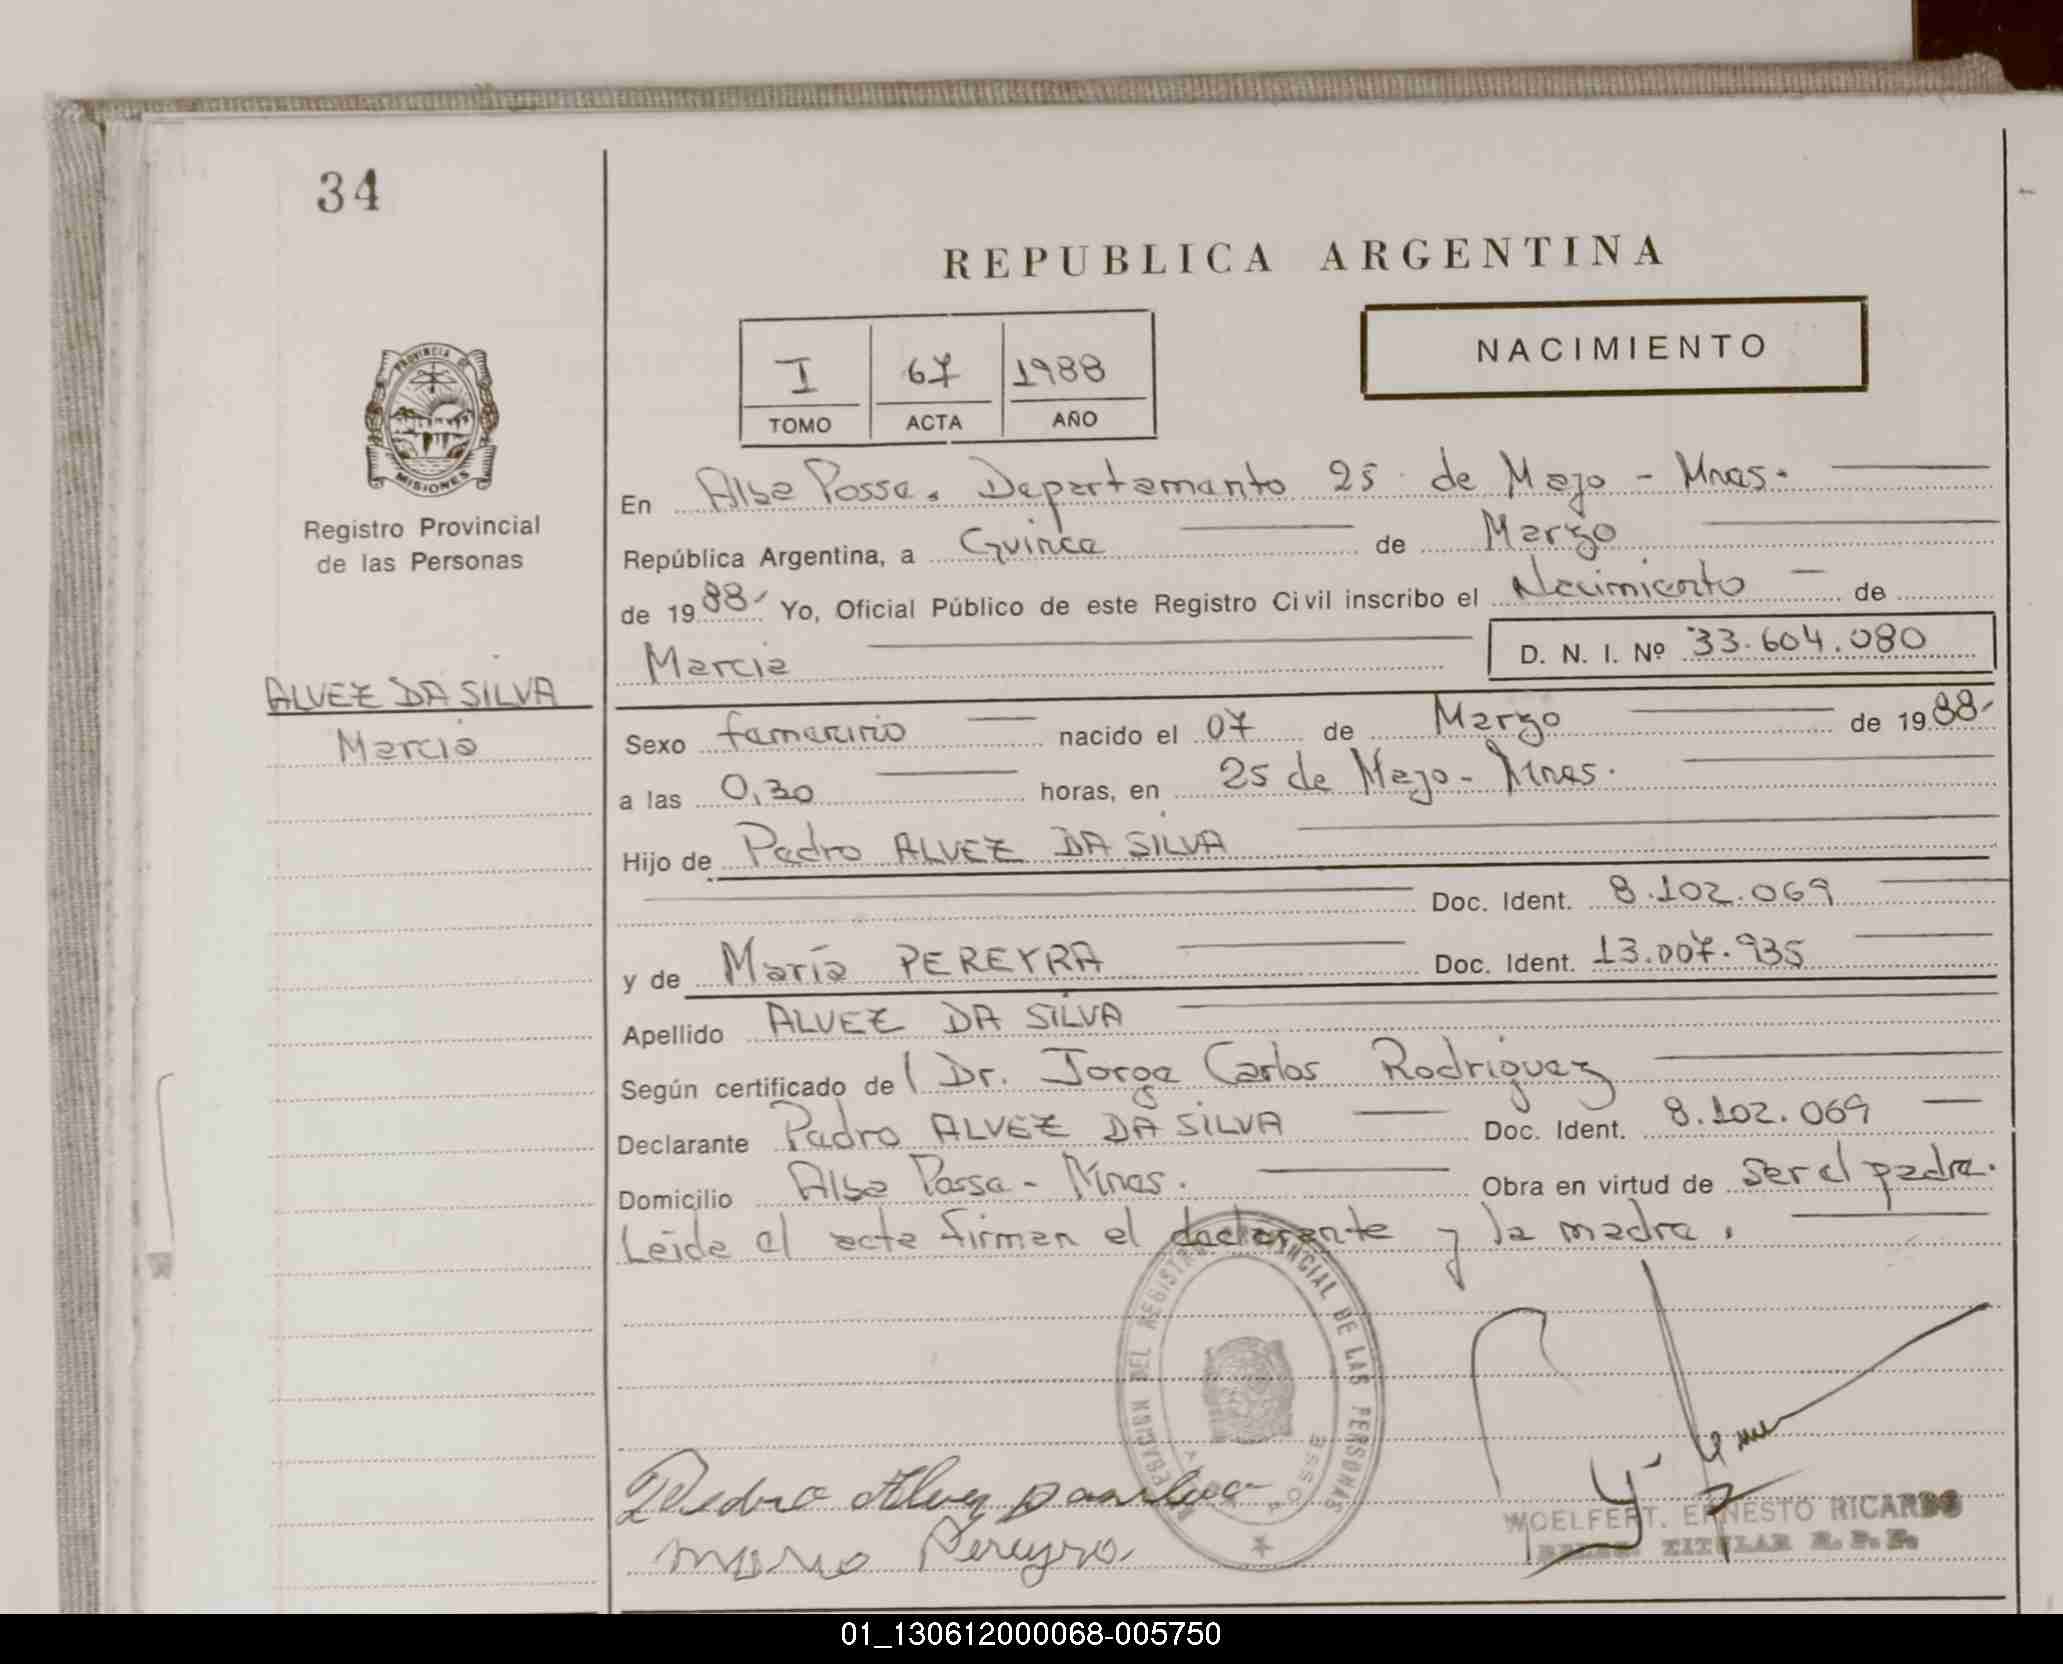 34
REPUBLICA ARGENTINA
NACIMIENTO
I 67 1988
TOMO ACTA AÑO
PROVINCIA DE
MISIONES
Registro Provincial
de las Personas
ALVEZ DA SILVA
Marcia
En Alba Posse. Departamento 25 de Mayo - Mnes.
República Argentina, a Quince de Marzo
de 1988- Yo, Oficial Público de este Registro Civil inscribo el Nacimiento de
Marcia D. N. I. Nº 33.604.080
Sexo femenino nacido el 07 de Marzo de 1988-
a las 0,30 horas, en 25 de Mayo - Mnes.
Hijo de Pedro ALVEZ DA SILVA
Doc. Ident. 8.102.069
y de María PEREYRA Doc. Ident. 13.007.935
Apellido ALVEZ DA SILVA
Según certificado de l Dr. Jorge Carlos Rodriguez
Declarante Pedro ALVEZ DA SILVA Doc. Ident. 8.102.069
Domicilio Alba Posse - Mnes. Obra en virtud de ser el padre.
Leída el acta firman el declarante y la madre.
DELEGACION DEL REGISTRO PROVINCIAL DE LAS PERSONAS
ALBA POSSE
Pedro Alvez Dasilva
Maria Pereyra
WOELFERT. ERNESTO RICARDO
TITULAR R.P.P.
01_130612000068-005750